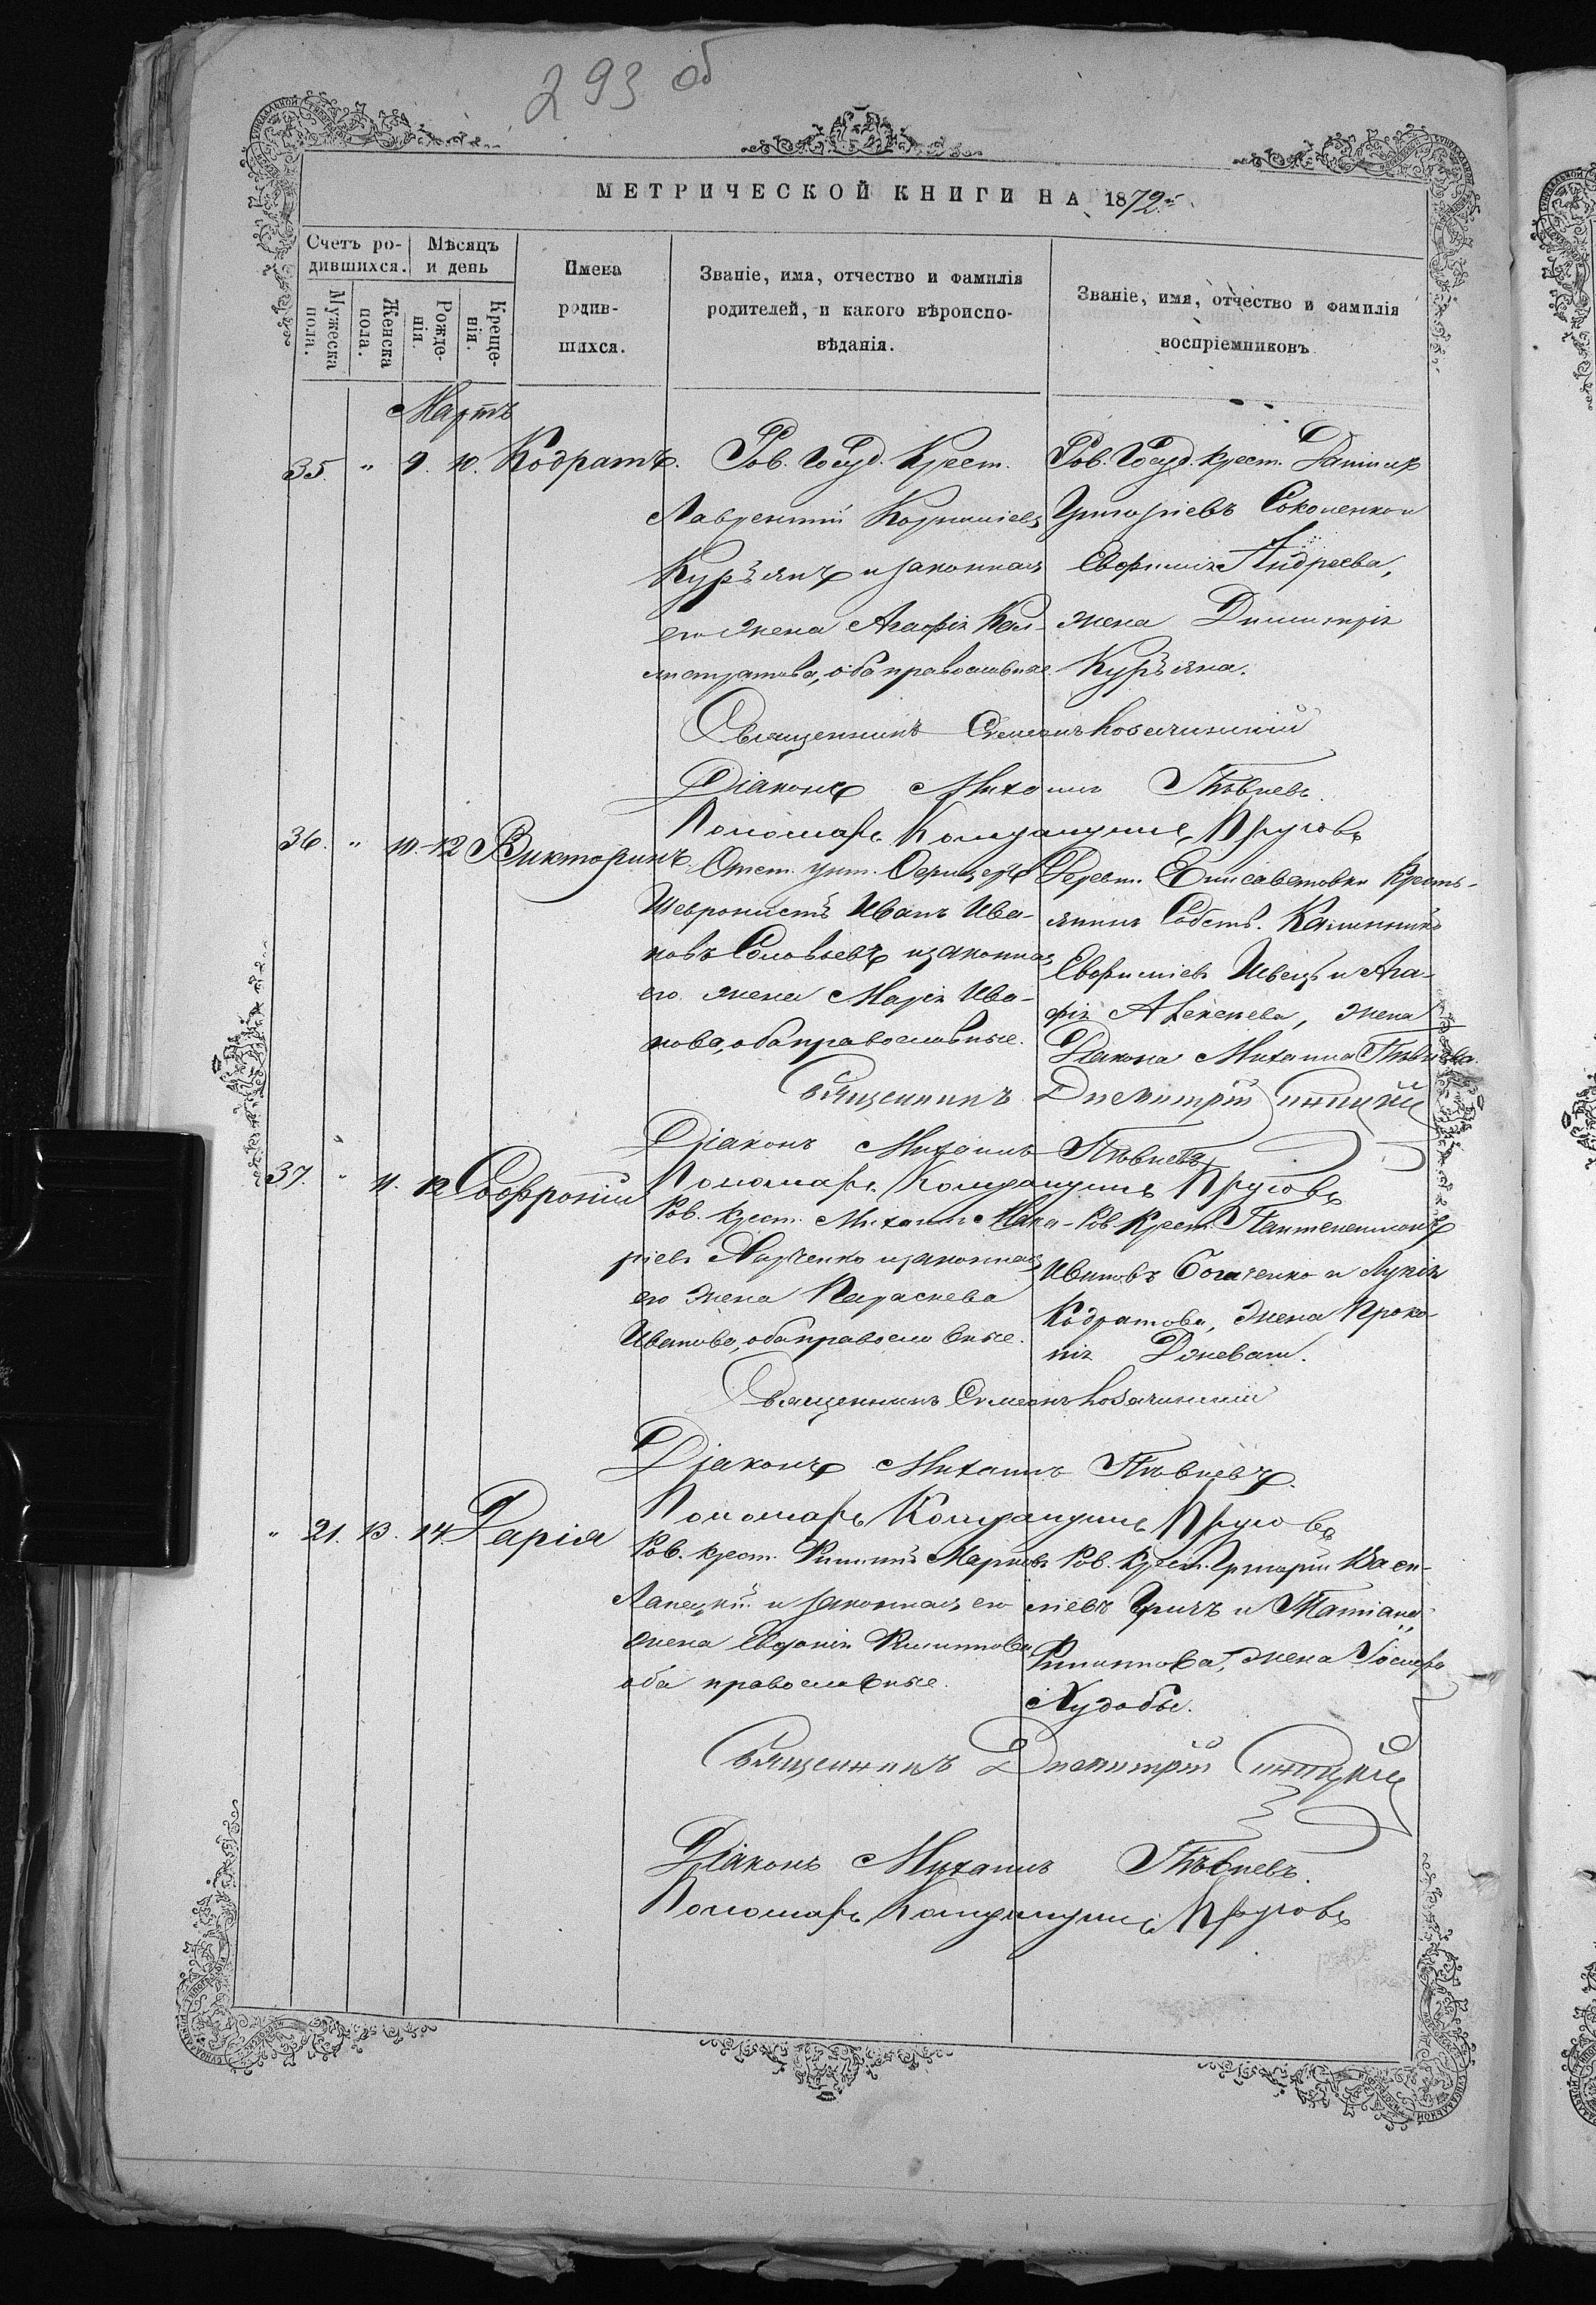 293 об
МЕТРИЧЕСКОЙ КНИГИ НА 1872.й
Счетъ ро-
дившихся.
Мѣсяцъ
и день
Мужеска
пола.
Женска
пола.
Рожде-
нія.
Креще-
нія.
Имена
родив-
шихся.
Званіе, имя, отчество и фамилія
родителей, и какого вѣроиспо-
вѣданія.
Званіе, имя, отчество и фамилія
воспріемниковъ
Мартъ
35. " 9. 10. Кодратъ.
Гов. Госуд. Крест.
Лаврентій Корниліевъ
Курѣянъ и законная
его жена Агафія Кал-
листратова, оба православные
Гов. Госуд. Крест.
Григоріевъ Соколенко и
Евфимія Андреева,
жена Димитрія
Курѣяна.
Священникъ Симеонъ
Діаконъ Михаилъ Пѣвневъ.
Пономарь Пруговъ
36. " 10. 12 Викторинъ
Отст. унт. Офицеръ
Шевронистъ Иванъ Ива-
новъ Соловьевъ и законная
его жена Марія Ива-
нова, оба православные.
Дерев. Елисаветовки Кресть-
янинъ Собств. Каллиникъ
Евфиміевъ Швецъ и Ага-
фія Алексѣева, жена
Діакона Михаила Пѣвнева.
Священникъ Димитрій Синицкій
Діаконъ Михаилъ Пѣвневъ
Пономарь Пруговъ
37. " 11. 12 Софроній
Гов. Крест. Михаилъ Мака-
ріевъ Марченко и законная
его жена Параскева
Иванова, оба православные.
Гов. Крест. Пантелеимонъ
Ивановъ Богаченко и Лукія
Кодратова, жена Проко-
пія Дзневаги.
Священникъ Симеонъ
Діаконъ Михаилъ Пѣвневъ.
Пономарь Пруговъ
" 21. 13. 14. Дарія
Гов. Крест. Филиппъ Марковъ
Лапецкій и законная его
жена Евдокія Филиппова
оба православные.
Гов. Крест. Григорій Васи-
ліевъ Гричъ и Татіана
Филиппова, жена Іосифа
Худобы.
Священникъ Димитрій Синицкій
Діаконъ Михаилъ Пѣвневъ.
Пономарь Пруговъ